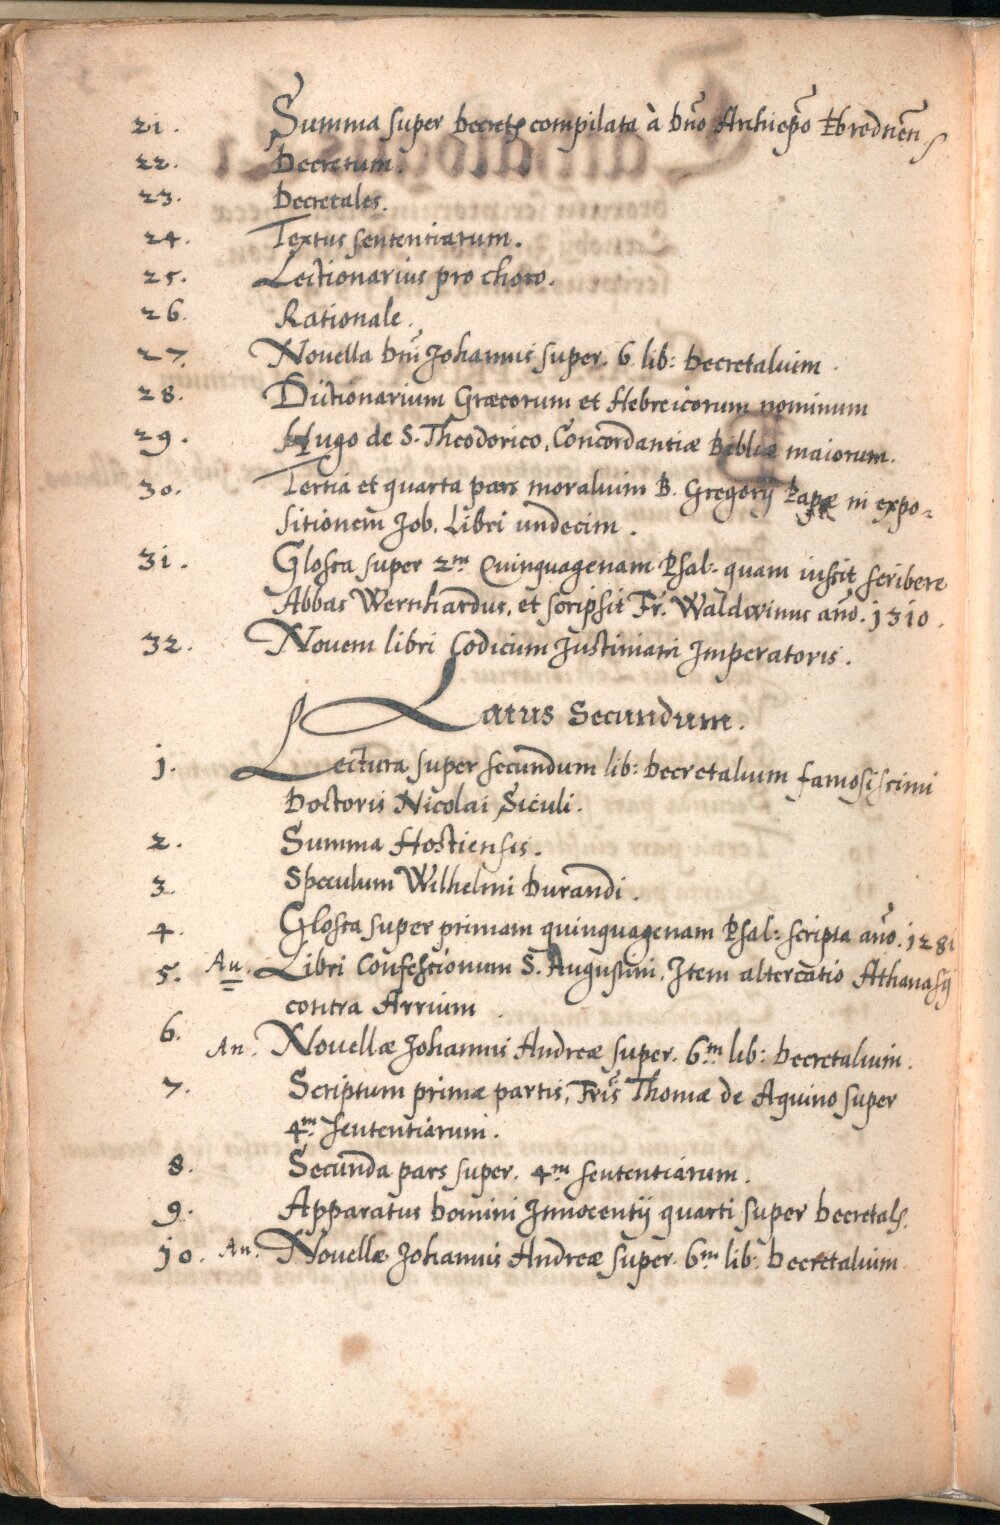 21. Summa super Decretₚ compilata à Dn̄o Archiep̄o Ebrednēn
22. Decretum.
23. Decretales.
24. Textus sententiarum.
25. Lectionarius pro choro.
26. Rationale.
27. Nouella Dn̄i Johannis super. 6. lib: Decretalium.
28. Dictionarium Græcorum et Hebreicorum nominum
29. Hugo de S. Theodorico, Concordantiæ Bibliæ maiorum.
30. Tertia et quarta pars moralium B. Gregorij Papæ in expo-
sitionem Job. Libri undecim.
31. Glossa super 2m Quinquagenam Psal: quam iussit scribere
Abbas Wernhardus, et scripsit Fr. Waldwinus año. 1310.
32. Nouem libri Codicum Justiniani Imperatoris.
Latus Secundum.
1. Lectura super secundum lib: Decretalium famosissimi
Doctoris Nicolai Siculi.
2. Summa Hostiensis.
3. Speculum Wilhelmi Durandi.
4. Glossa super primam quinquagenam Psal: scripta año. 1281
5. Au. Libri Confessionum S. Augustini. Item altercatio Athanasij
contra Arrium
6. An. Nouellæ Johannis Andreæ super. 6m lib: Decretalium.
7. Scriptum primæ partis, Fr̄is Thomæ de Aquino super
4m sententiarum.
8. Secunda pars super. 4m sententiarum.
9. Apparatus Domini Innocentij quarti super Decretal.
10. An. Nouellæ Johannis Andreæ super. 6m lib: Decretalium